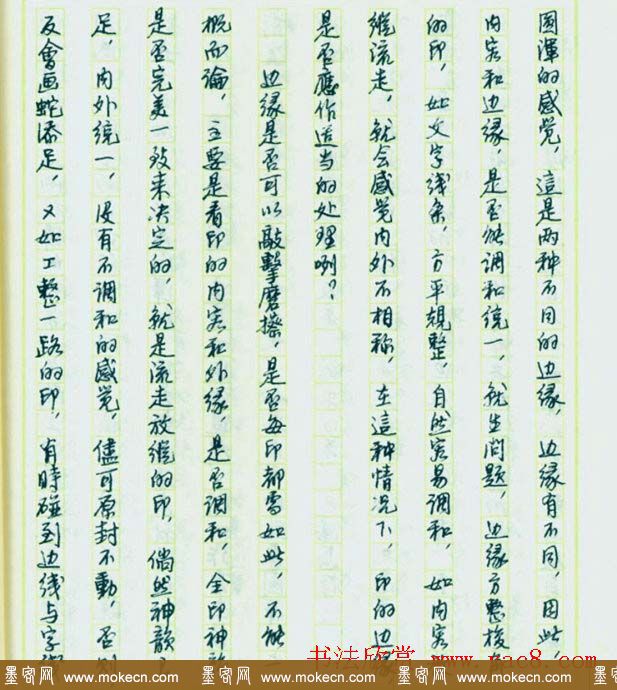 圆渾的感觉，這是两种不同的边缘，边缘有不同，因此，
内容和边缘，是否能调和统一，就生问题，边缘方整
的印，如文字线条，方平規整，自然容易调和，如内容
纵流走，就会感觉内外不相称，在這种情况下，印的边
是否應作适当的处理咧？
边缘是否可以敲擊磨擦，是否每印都需如此，不能一
概而論，主要是看印的内容和外缘，是否调和，全印神
是否完美一致来决定的，就是流走放纵的印，倘然神韻
足，内外统一，没有不调和的感觉，儘可原封不動，否则
反會画蛇添足，又如工整一路的印，有時碰到边线与字
书法欣赏 www.yac8.com
墨客网 www.mokecn.com 墨客网 www.mokecn.com 墨客网 www.mokecn.com